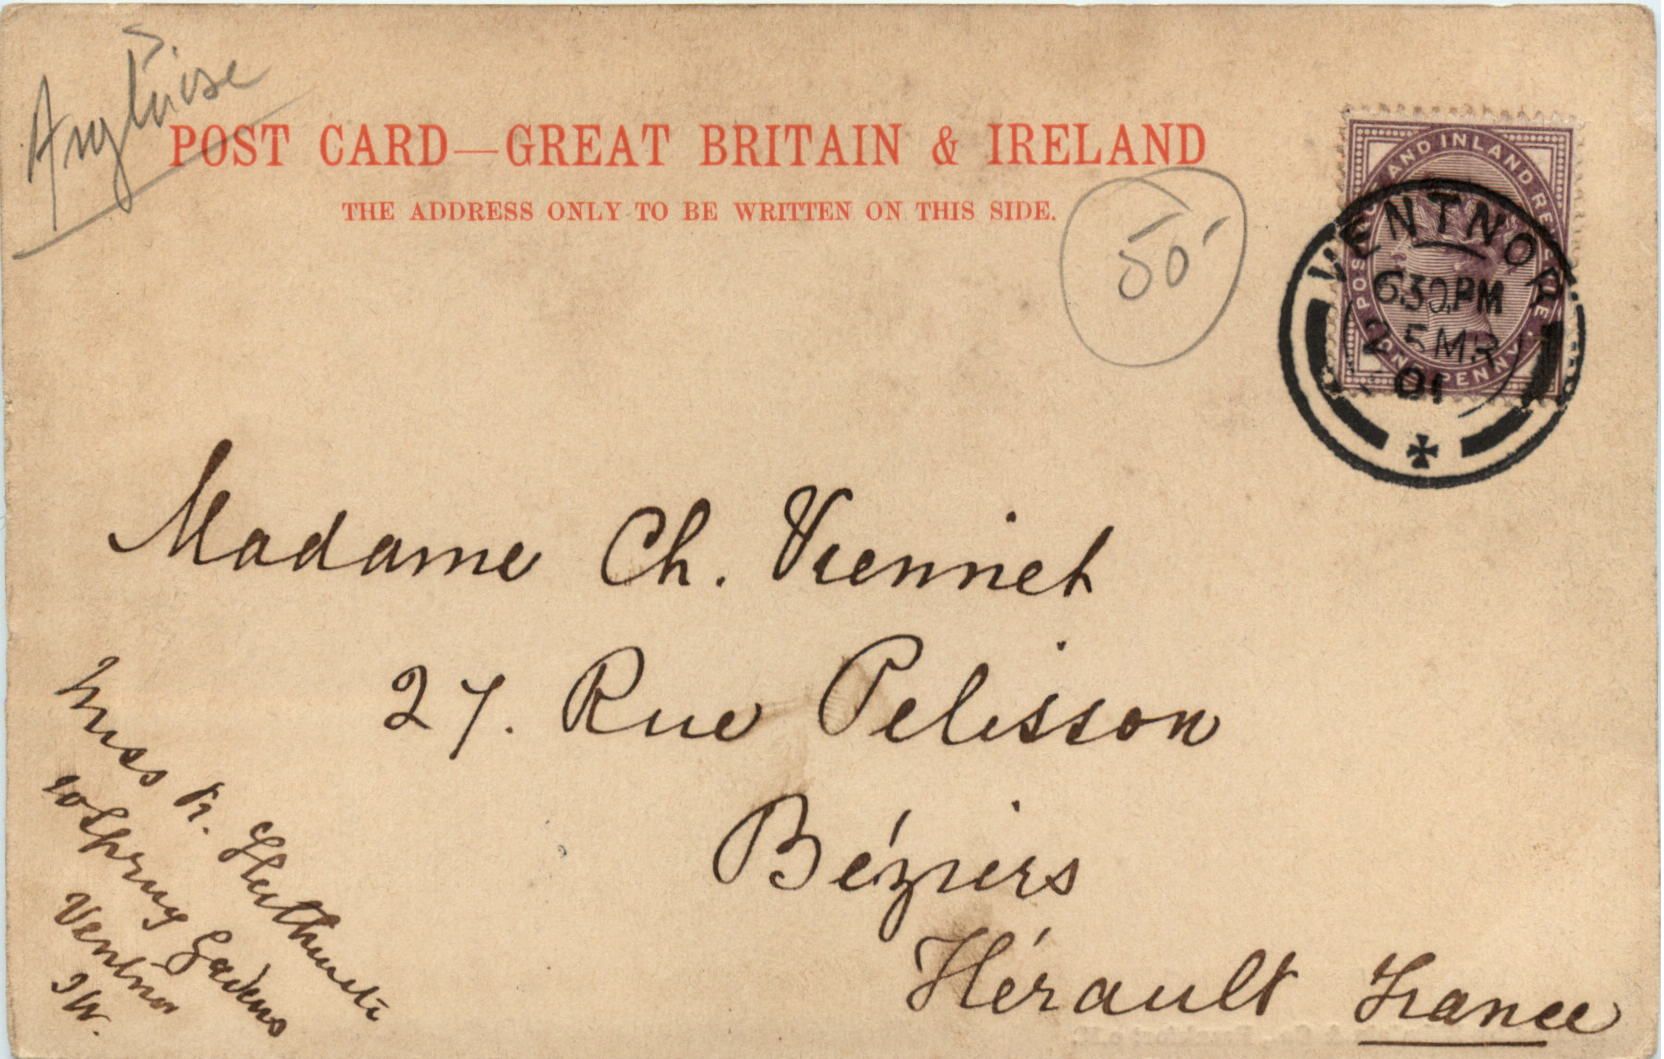 Angloise
POST CARD—GREAT BRITAIN & IRELAND
THE ADDRESS ONLY TO BE WRITTEN ON THIS SIDE.
50
POSTAGE AND INLAND REVENUE
ONE PENNY
VENTNOR
6 30 PM
25 MR
01
Madame Ch. Viennet
27. Rue Pelisson
Béziers
Hérault France
Miss R.
10 Spring Gardens
Ventnor
I W.